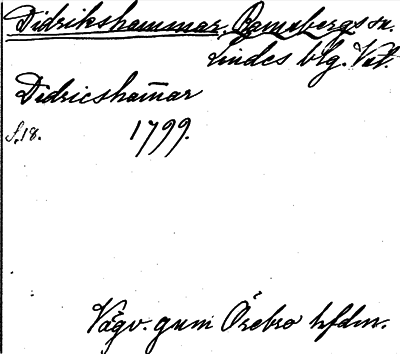 Didrikshammar, Ramsbergs sn.
Lindes blg. Vstm.
Didricsham̅ar
s. 18. 1799.
Vägv. gnm Örebro hfdm.